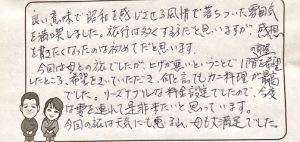 良い意味で昭和を感じさせる風情で落ちついた雰囲気
を満喫しました。旅行は良くするだと思いますが、感想
を書きたくなったのは初めてだと思います。
今回は母との旅でしたが、ヒザが悪いということで1階を希望
したところ、希望をきいていただき、何と言ってもカニ料理が最高
でした。リーズナブルな料金設定でしたので、今度
は妻を連れて是非来たいと思っています。
今回の旅は天気にも恵まれ、母も大満足でした。